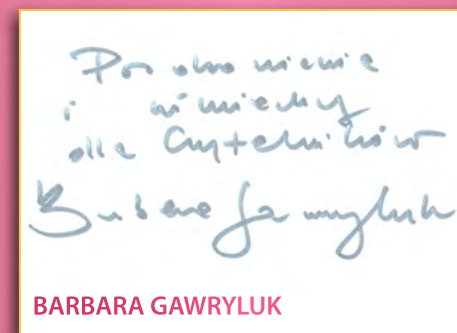 Pozdrowienia
i uśmiechy
dla Czytelników
Barbara Gawryluk
BARBARA GAWRYLUK